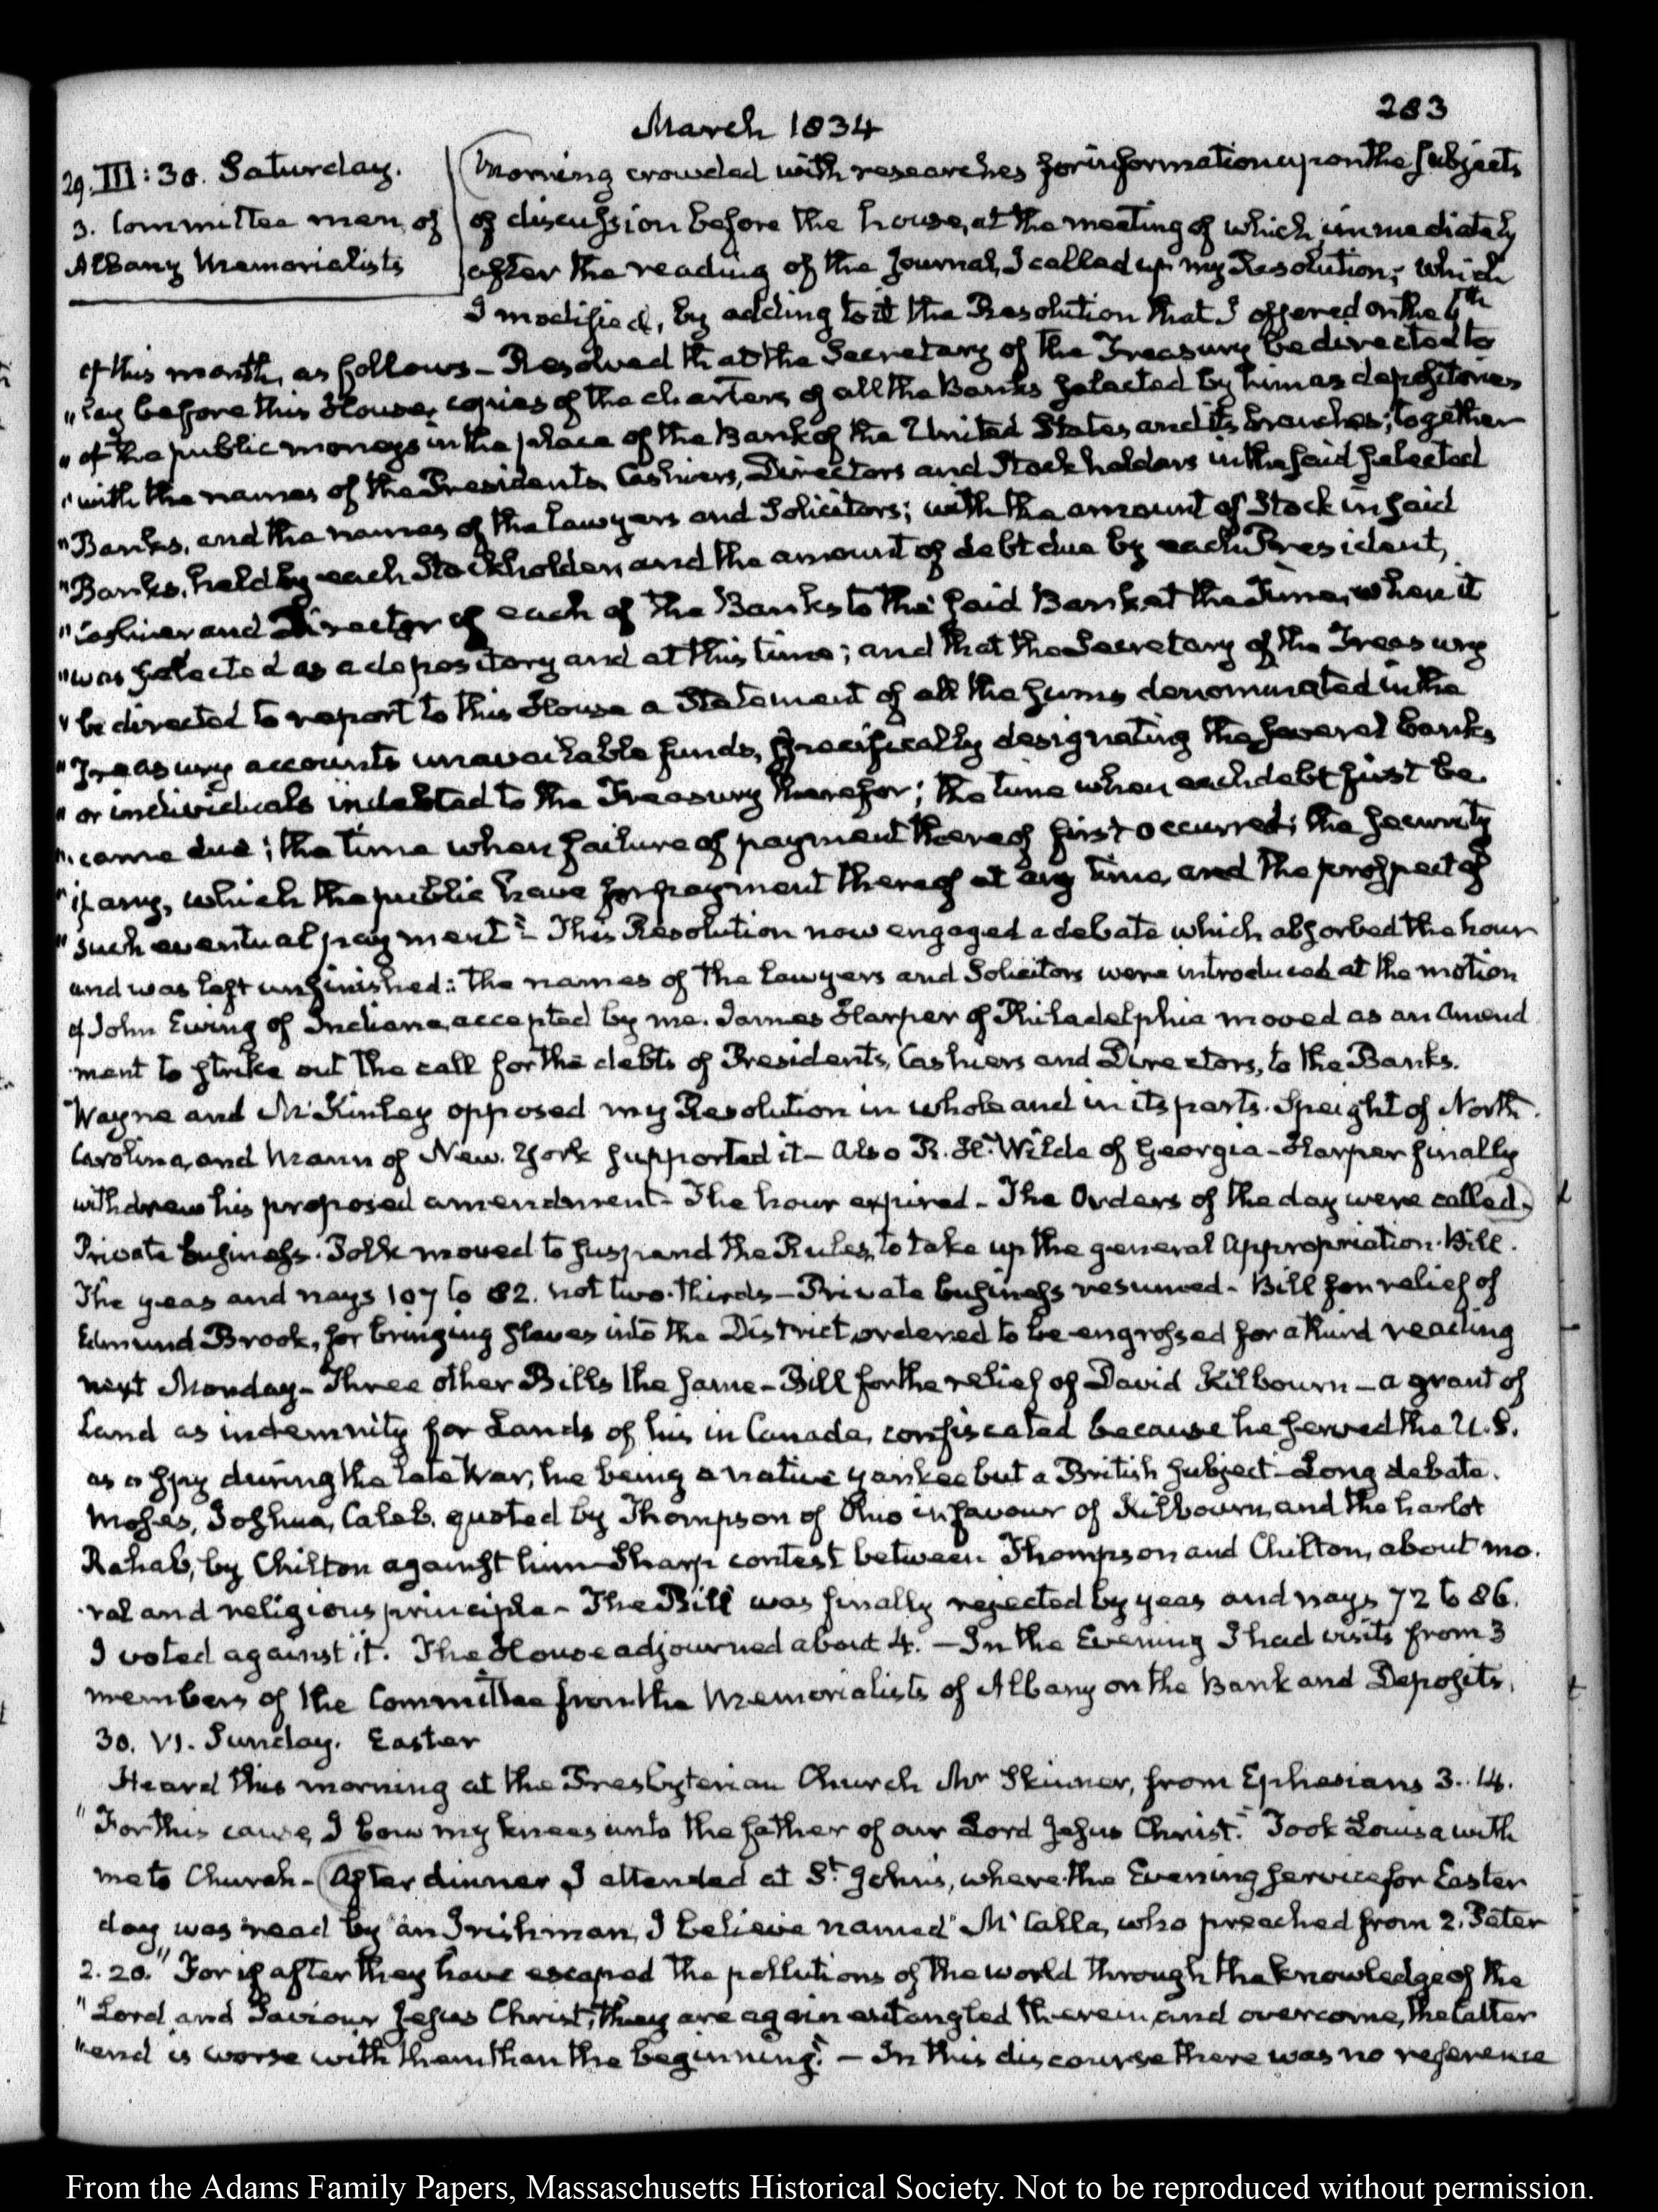 283
March 1834
29. III: 30. Saturday.
3. Committee men, of
Albany Memorialists
Morning crowded with researches for information upon the subjects
of discussion before the house, at the meeting of which, immediately
after the reading of the Journal, I called up my Resolution; which
I modified, by adding to it the Resolution that I offered on the 6th
of this month, as follows— Resolved that the Secretary of the Treasury be directed to
"lay before this House, copies of the charters of all the Banks selected by him as depositories
"of the public moneys in the place of the Bank of the United States and its branches; together
"with the names of the Presidents, Cashiers, Directors and Stockholders in the said selected
"Banks, and the names of the Lawyers and Solicitors; with the amount of Stock in said
"Banks, held by each Stockholder, and the amount of debt due by each President,
"Cashier and Director of each of the Banks to the said Bank at the Time, when it
"was selected as a depository and at this time; and that the Secretary of the Treasury
"be directed to report to this House a Statement of all the sums denominated in the
"Treasury accounts unavailable funds, specifically designating the several banks
"or individuals indebted to the Treasury therefor; the time when each debt first be
"came due; the time when failure of payment thereof first occurred; the security
"if any, which the public have for payment thereof at any time, and the prospect of
"such eventual payment"— This Resolution now engaged a debate which absorbed the hour
and was left unfinished: the names of the Lawyers and Solicitors were introduced at the motion
of John Ewing of Indiana, accepted by me. James Harper of Philadelphia moved as an Amend
ment to strike out the call for the debts of Presidents, Cashiers and Directors, to the Banks.
Wayne and McKinley opposed my Resolution in whole and in its parts. Speight of North
Carolina, and Mann of New-York supported it— Also R. H. Wilde of Georgia— Harper finally
withdrew his proposed amendment— The hour expired— The Orders of the day were called—
Private business. Polk moved to suspend the Rules, to take up the general Appropriation Bill.
The yeas and nays 107 to 82. not two-thirds— Private business resumed— Bill for relief of
Edmund Brook, for bringing slaves into the District, ordered to be engrossed for a third reading
next Monday— Three other Bills the same— Bill for the relief of David Kilbourn— a grant of
Land as indemnity for Lands of his in Canada, confiscated because he served the U.S.
as a spy during the late War; he being a native yankee but a British subject— Long debate.
Moses, Joshua, Caleb, quoted by Thompson of Ohio in favour of Kilbourn, and the harlot
Rahab, by Chilton against him— Sharp contest between Thompson and Chilton, about mo-
-ral and religious principle— The Bill was finally rejected by yeas and nays 72 to 86.
I voted against it. The House adjourned about 4.— In the Evening I had visits from 3
members of the Committee from the Memorialists of Albany on the Bank and Deposits.
30. VI. Sunday. Easter
Heard this morning at the Presbyterian Church Mr Skinner, from Ephesians 3..14.
"For this cause, I bow my knees unto the father of our Lord Jesus Christ." Took Louisa with
me to Church— After dinner I attended at St John's, where the Evening service for Easter
day was read by an Irishman, I believe named McCalla, who preached from 2. Peter
2.20. "For if after they have escaped the pollutions of the world through the knowledge of the
"Lord and Saviour Jesus Christ, they are again entangled therein, and overcome, the latter
"end is worse with them than the beginning."— In this discourse there was no reference
From the Adams Family Papers, Massachusetts Historical Society. Not to be reproduced without permission.